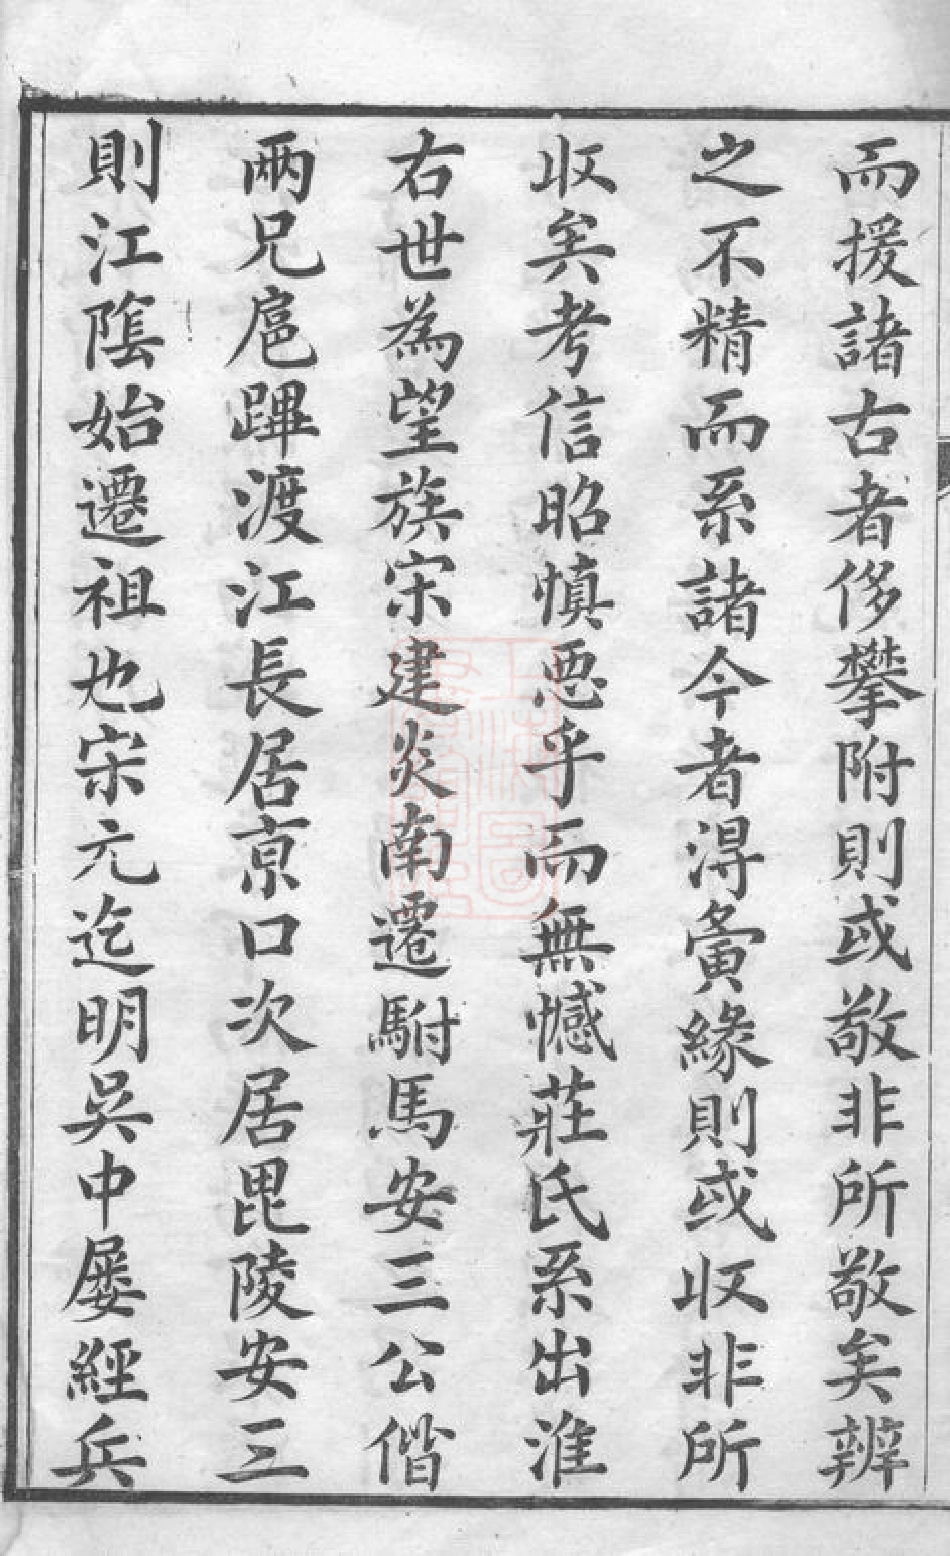 而援諸古者侈攀附則或敬非所敬矣辨
之不精而系諸今者淂夤緣則或收非所
收矣考信昭慎惡乎而無憾莊氏系出淮
右世為望族宋建炎南遷駙馬安三公偕
兩兄扈蹕渡江長居京口次居毘陵安三
則江隂始遷祖也宋元迄明吳中屡經兵